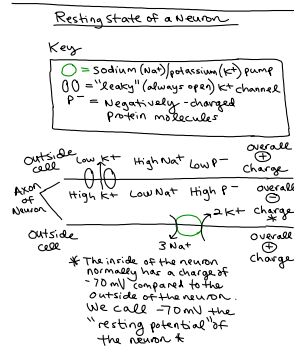 Resting State of a Neuron
Key
= Sodium (Na+)/potassium (K+) pump
= "leaky" (always open) K+ channel
P- = Negatively-charged
Protein molecules
Outside cell
Low K+ High Na+ Low P-
overall + charge
Axon of Neuron
High K+ Low Na+ High P-
overall - charge *
Outside cell
3 Na+
2 K+
overall + charge
* The inside of the neuron
normally has a charge of
-70 mV compared to the
outside of the neuron.
We call -70 mV the
"resting potential" of
the neuron *